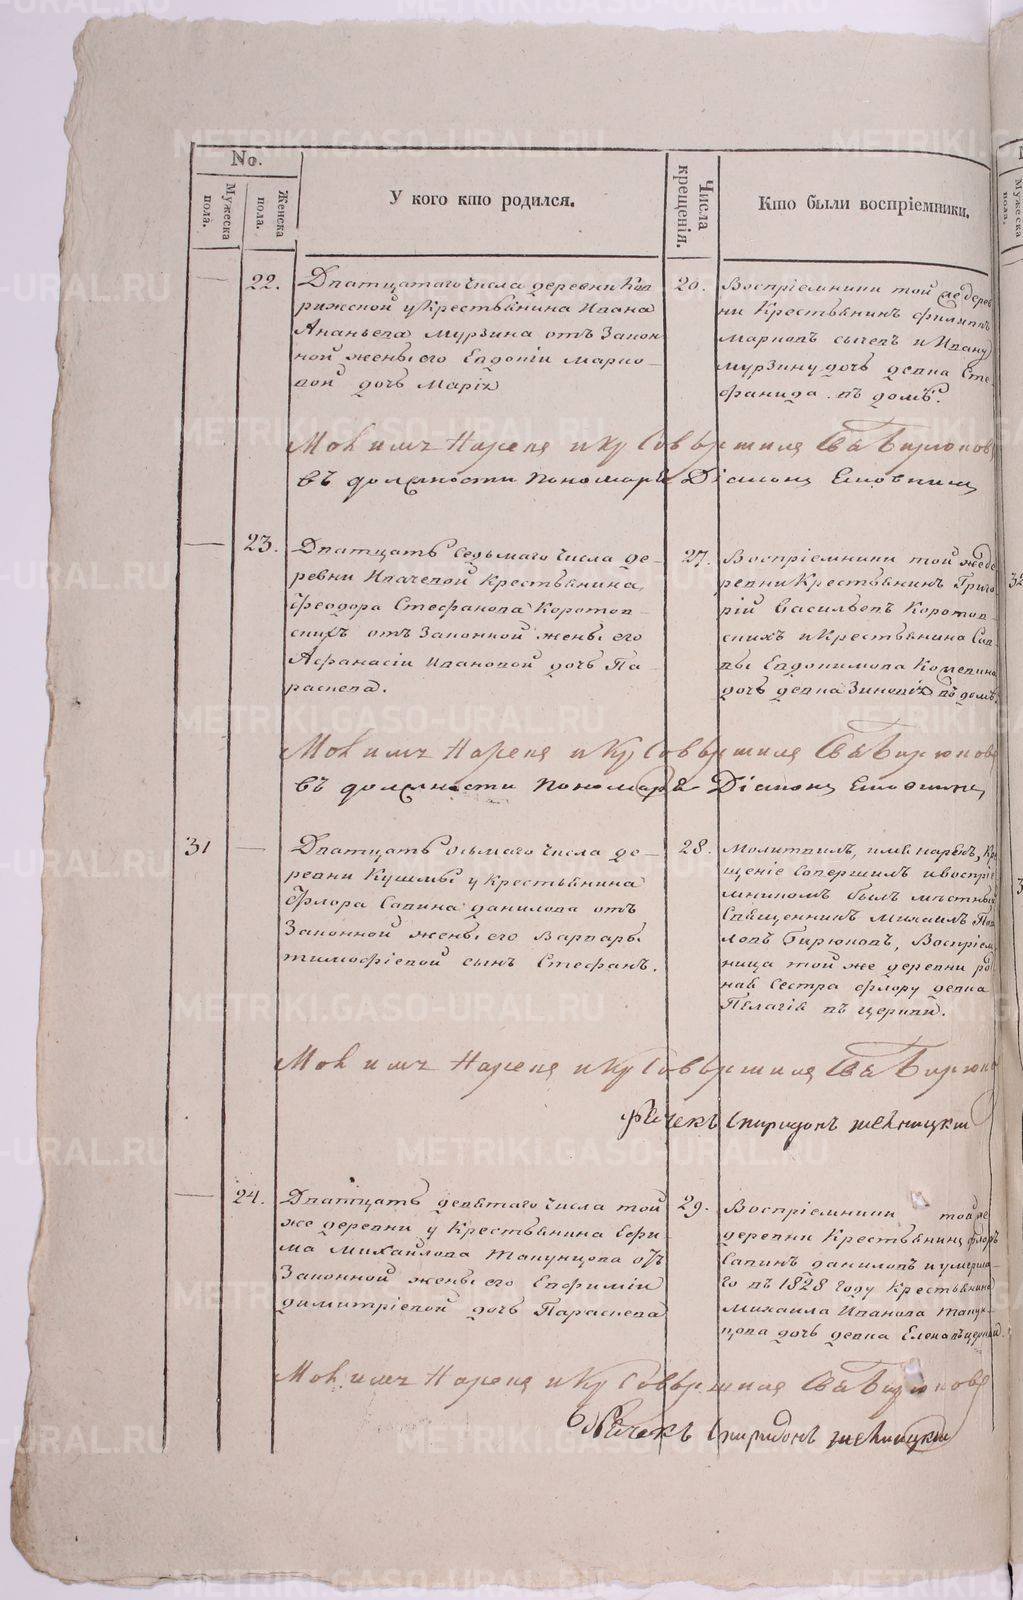 No.
Мужеска пола.
Женска пола.
У кого кто родился.
Числа крещенія.
Кто были воспріемники.
22.
Дватцатаго числа деревни Ков
рижской у Крестьянина Ивана
Ананьева Мурзина отъ Закон
ной жены его Евдокіи Марко-
вой дочь Марія
20.
Воспріемники той же дерев
ни Крестьянинъ Филиппъ
Марковъ Сычевъ и Ивану
Мурзину дочь девка Сте-
фанида въ домѣ.
Мол имя Нареч и Кр Совершилъ Свя Бирюковъ
въ должности пономаря Діаконъ
23.
Дватцать седьмаго числа де-
ревни Ивачевой Крестьянина
Феодора Стефанова Коротов-
скихъ отъ Законной жены его
Афанасіи Ивановой дочь Па-
раскева.
27.
Воспріемники той же де
ревни Крестьянинъ Григо
рій Васильевъ Коротов-
скихъ и Крестьянина Сав-
вы Евдокимова
дочь девка Зиновія въ домѣ
Мол имя Нареч и Кр Совершилъ Свя Бирюковъ
въ должности пономаря Діаконъ
31
Дватцать осьмаго числа де-
ревни Кушмы у Крестьянина
Флора Савина Данилова отъ
Законной жены его Варвары
Тимофіевой сынъ Стефанъ.
28.
Молитвилъ, имя нарекъ, Кре
щеніе совершилъ и воспріе
мникомъ былъ местный
Священникъ Михаилъ Пав
ловъ Бирюковъ, Воспріем
ница той же деревни род
ная сестра Флору девка
Пелагія въ церкви.
Мол имя Нареч и Кр Совершилъ Свя Бирюков
Дьячекъ Спиридонъ
24.
Дватцать девятаго числа той
же деревни у Крестьянина Ефи-
ма Михайлова Тапунцова отъ
Законной жены его Евфиміи
Димитріевой дочь Параскева
29.
Воспріемники той же
деревни Крестьянинъ Флоръ
Савинъ Даниловъ и умерша-
го въ 1828 году Крестьянина
Михаила Иванова Тапун-
цова дочь девка Елена въ церкви.
Мол имя Нареч и Кр Совершилъ Свя Бирюковъ
Дьячекъ Спиридонъ
METRIKI.GASO-URAL.RU